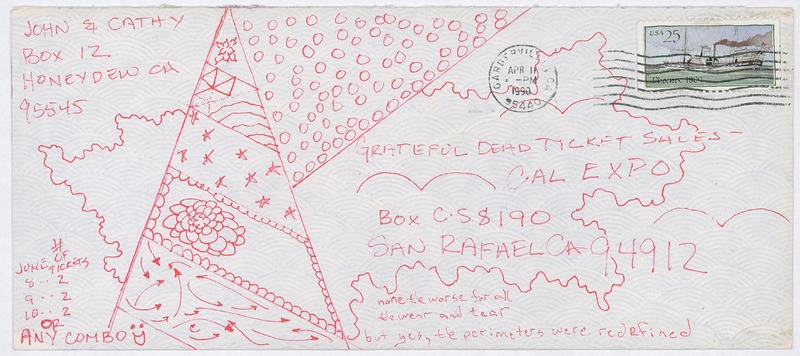 JOHN & CATHY
BOX 12
HONEYDEW CA
95545
USA 25
Phoenix 1809
GARBERVILLE, CA
APR 11
PM
1990
95440
GRATEFUL DEAD TICKET SALES -
CAL EXPO
BOX C·S8190
SAN RAFAEL CA 94912
none the worse for all
the wear and tear
but yes, the perimeters were redefined
#
JUNE OF
TICKETS
8 .. 2
9 .. 2
10 .. 2
OR
ANY COMBO